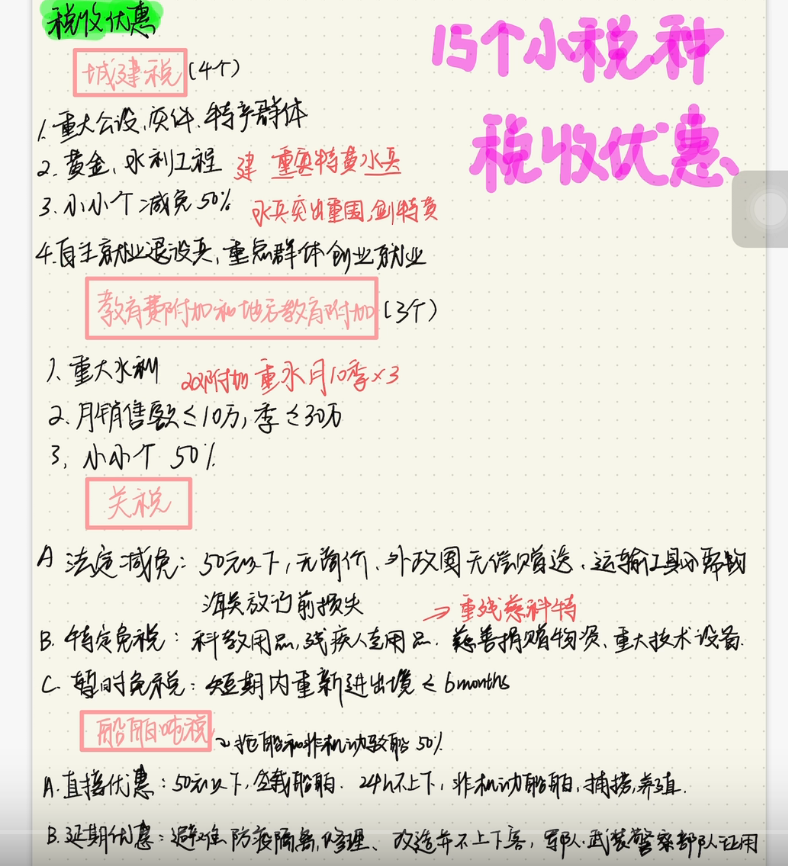 税收优惠
15个小税种
税收优惠
城建税(4个)
1.重大公设、页件、特产群体
2.黄金、水利工程 建 重页特黄水兵
3.小小个减免50% 水兵突出重围,剑特黄
4.自主就业退役兵,重点群体创业就业
教育费附加和地方教育附加(3个)
1、重大水利 双附加重水月10季×3
2.月销售额≤10万,季≤30万
3,小小个 50%
关税
A 法定减免:50元以下,无商价、外政国无偿赠送、运输工具必需的
海关放行前损失 → 重残慈科特
B.特定免税:科教用品,残疾人专用品.慈善捐赠物资、重大技术设备.
C.暂时免税:短期内重新进出境<6months
船舶吨税 拖船和非机动驳船50%
A.直接优惠:50元以下,空载船舶.24h不上下,非机动船舶,捕捞,养殖.
B.延期优惠:避难,防疫隔离,修理、改造并不上下客,军队.武装警察部队征用